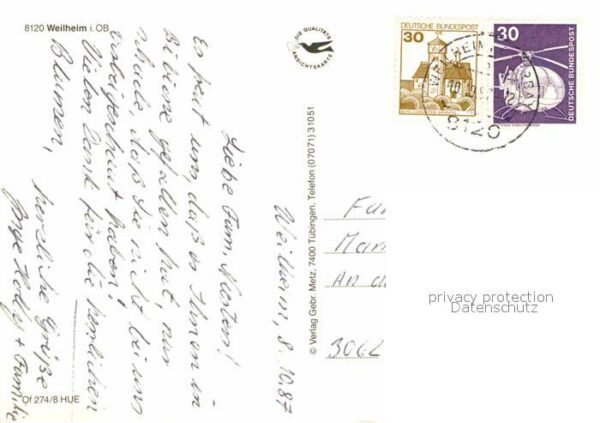 8120 Weilheim i. OB
DIE QUALITÄTS
ANSICHTSKARTE
30
DEUTSCHE BUNDESPOST
30
DEUTSCHE BUNDESPOST
8120
Weilheim, 8.10.87
Liebe Fam.
Es freut uns, daß es Ihnen in
gefallen hat, nur
schade, daß Sie nicht bei uns
haben!
Vielen Dank für die herrlichen
Blumen,
herzliche Grüße
+ Familie
© Verlag Gebr. Metz, 7400 Tübingen, Telefon (07071) 31051
Fa
Mar
An d
3062
privacy protection
Datenschutz
Of 274/8 HUE